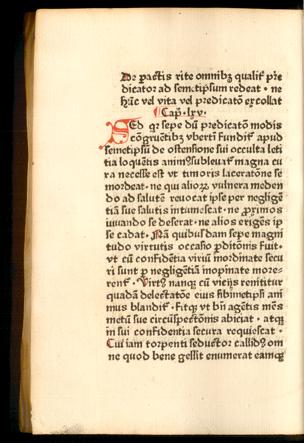 De pactis rite omnibꝫ qualiť pre
dicator ad semetipsum redeat · ne
hūc vel vita vel predicatō excollat
Cap̄ · lxv ·
Sed qꝛ sepe dū predicatōn modis
cōgruētibꝫ vbertī fundiť apud
semetipsū de ostensione sui occulta leti
tia loquētis animꝰ subleuať magna cu
ra necesse est vt timoris laceratōne se
mordeat · ne qui alioꝝ vulnera meden
do ad salutē reuocat ipse per negligē
tiā sue salutis intumescat · ne ꝓximos
iuuando se deserat · ne alios erigēs ip
se cadat · Nā quibusdam sepe magni
tudo virtutis occasio ꝑditōnis fuit ·
vt cū confidētia viriū inordinate secu
ri sunt ꝑ negligētiā inopinate more-
renť · Virtꝰ nanqꝫ cū vicijs renititur
quadā delectatōe eiꝰ sibimetipsi ani
mus blandiť · Fitqꝫ vt bn̄ agētis mēs
metū sue circūspectōnis abiciat · atqꝫ
in sui confidentia secura requiescat ·
Cui iam torpenti seductor callidꝰ om
ne quod bene gessit enumerat eamqꝫ